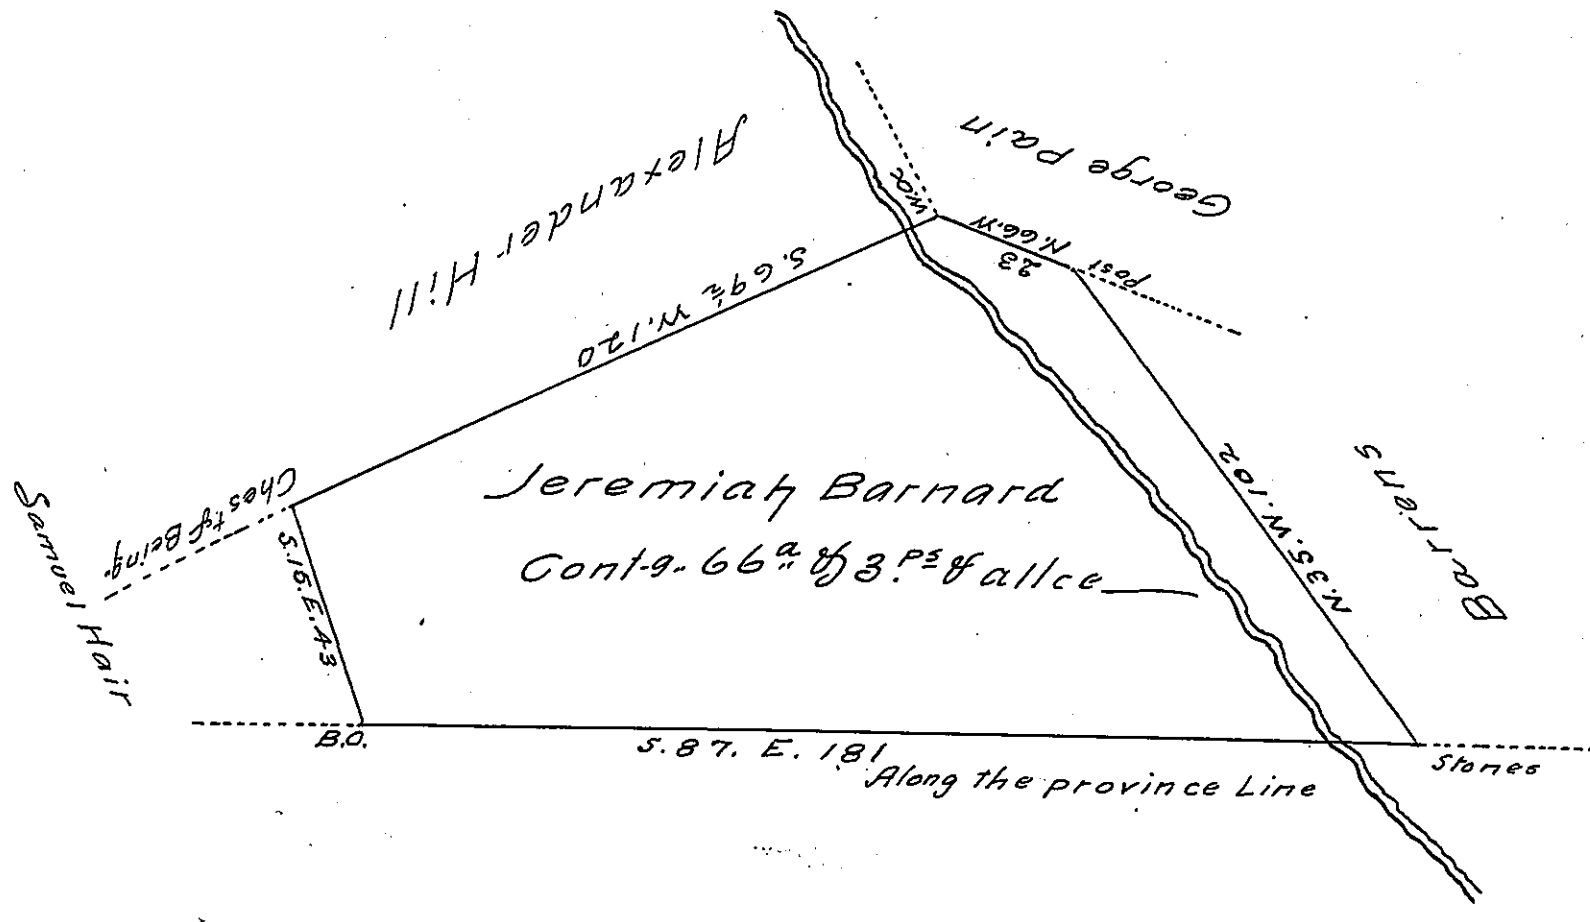 George Pain
Alexander Hill
W.O.
N.66.W
23
Post
S.69½ W.120
N.35.W.102
Barrens
Chest.
Samuel Hair
S.15.E.43
Jeremiah Barnard
Cont-g. 66ª & 3.ᵖˢ & allce
B.O.
S.87. E. 181
Along the province Line
Stones